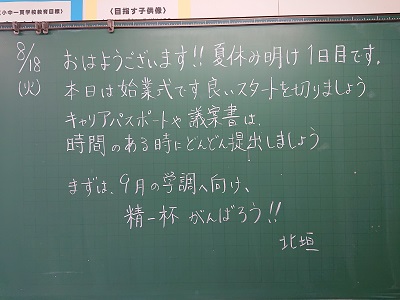 小中一貫学校教育目標》
《目指す子供像》
8/18
(火)
おはようございます!! 夏休み明け1日目です。
本日は始業式です良いスタートを切りましょう
キャリアパスポートや議案書は、
時間のある時にどんどん提出しましょう
まずは、9月の学調へ向け、
精一杯 がんばろう!!
北垣